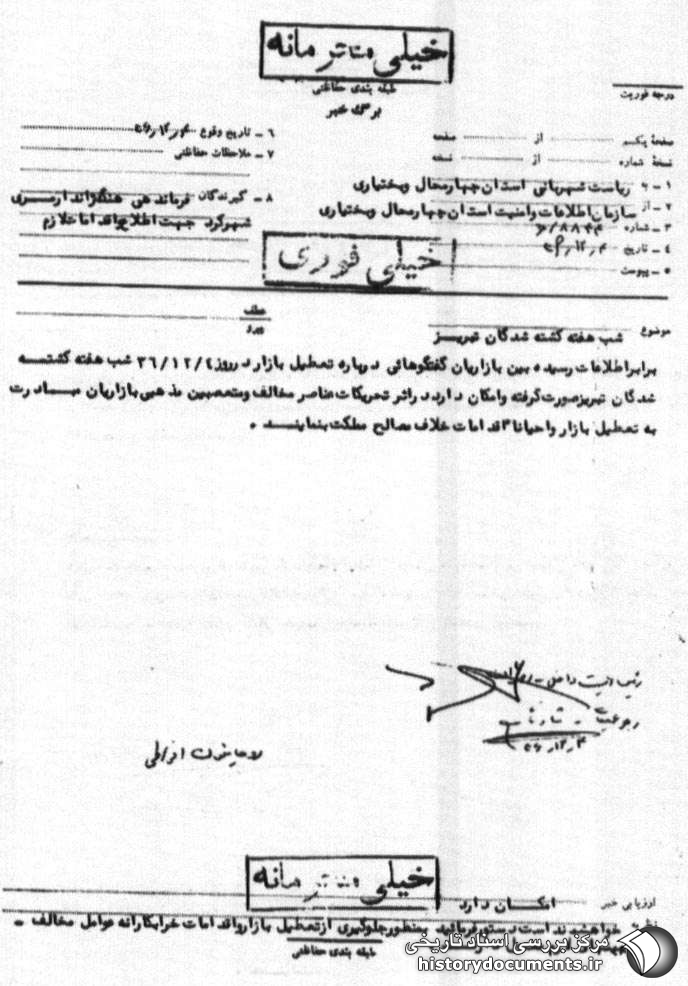 خیلی محرمانه
طبقه بندی حفاظتی
برگ خبر
درجه فوریت
صفحه یکم از صفحه
نسخه شماره از نسخه
۱ - به ریاست شهربانی استان چهارمحال وبختیاری
۲ - از سازمان اطلاعات وامنیت استان چهارمحال وبختیاری
۳ - شماره
٤ - تاریخ
۵ - پیوست
۶ - تاریخ وقوع
۷ - ملاحظات حفاظتی
۸ - گیرندگان فرماندهی هنگ ژاندارمری
شهرکرد جهت اطلاع واقدامات لازم
خیلی فوری
عطف
پیرو
موضوع شب هفته کشته شدگان تبریز
برابر اطلاعات رسیده بین بازاریان گفتگوهائی درباره تعطیل بازار در روز ۳۶/۱۲/٤ شب هفته کشته
شدگان تبریز صورت گرفته وامکان دارد در اثر تحریکات عناصر مخالف ومتعصبین مذهبی بازاریان مبادرت
به تعطیل بازار واحیانا" اقدامات خلاف مصالح مملکت بنمایند .
خیلی محرمانه
ارزیابی خبر امکان دارد
نظریه خواهشمند است دستور فرمائید بمنظور جلوگیری از تعطیل بازار واقدامات خرابکارانه عوامل مخالف -
طبقه بندی حفاظتی
مرکز بررسی اسناد تاریخی
historydocuments.ir